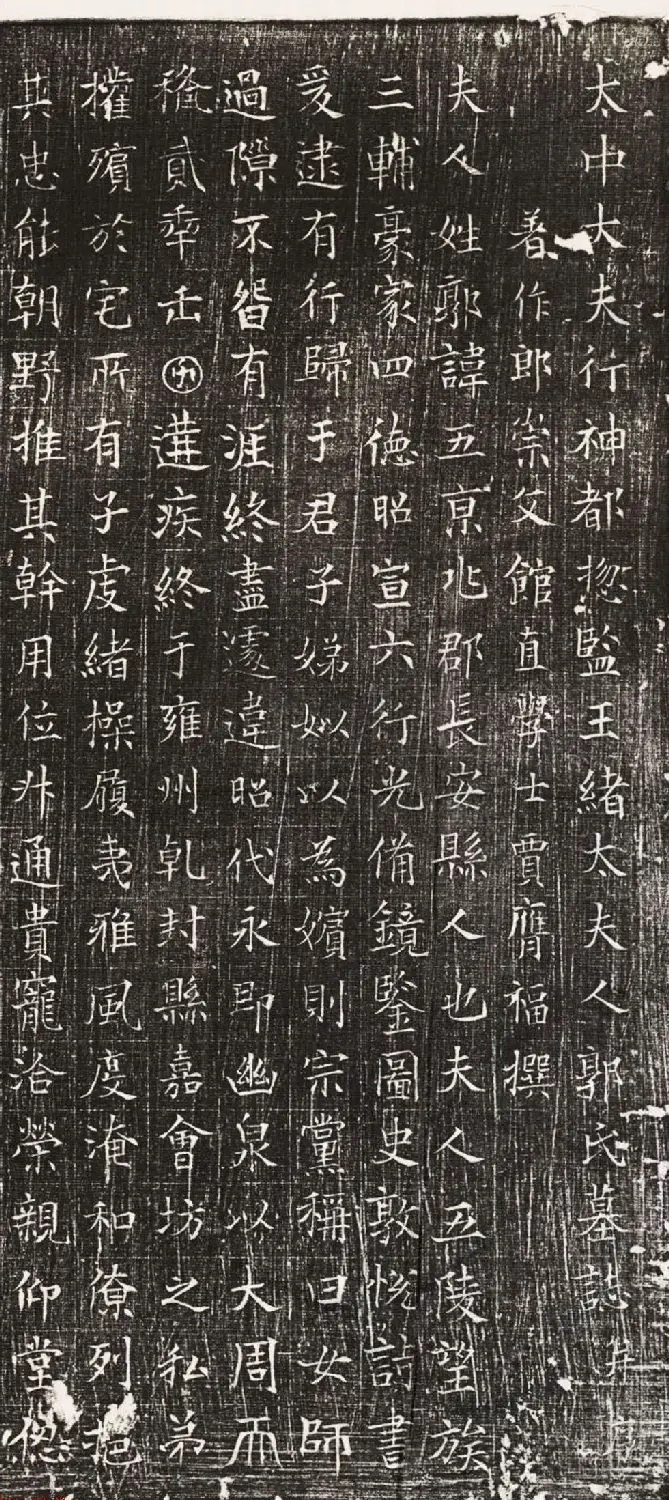 太中大夫行神都揔監王緒太夫人郭氏墓誌并序
著作郎崇文館直學士賈膺福撰
夫人姓郭諱五京兆郡長安縣人也夫人五陵望族
三輔豪家四德昭宣六行光備鏡鑒圖史敦悅詩書
爰逮有行歸于君子娣姒以為嬪則宗黨稱曰女師
過隙不留有涯終盡遽違昭代永即幽泉以大周天
授貳年正月遘疾終于雍州乹封縣嘉會坊之私弟
權殯於宅所有子虔緒操履夷雅風度淹和僚列挹
其忠能朝野推其幹用位升通貴寵洽榮親仰堂